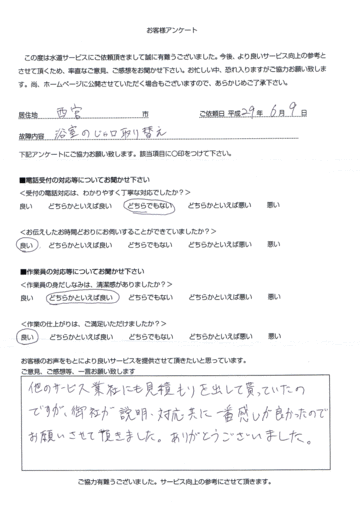 お客様アンケート
この度は水道サービスにご依頼頂きまして誠に有難うございました。今後、より良いサービス向上の参考と
させて頂くため、率直なご意見、ご感想をお聞かせ下さい。お忙しい中、恐れ入りますがご協力お願い致しま
す。尚、ホームページに公開させていただく場合もございますので、あらかじめご了承下さい。
居住地 西宮 市 ご依頼日 平成29年 6月 9日
故障内容 浴室のじゃ口取り替え
下記アンケートにご協力お願い致します。該当項目に○印をつけて下さい。
■電話受付の対応等についてお聞かせ下さい
<受付の電話対応は、わかりやすく丁寧な対応でしたか?>
良い どちらかといえば良い どちらでもない どちらかといえば悪い 悪い
<お伝えしたお時間どおりにお伺いすることができていましたか?>
良い どちらかといえば良い どちらでもない どちらかといえば悪い 悪い
■作業員の対応等についてお聞かせ下さい
<作業員の身だしなみは、清潔感がありましたか?>
良い どちらかといえば良い どちらでもない どちらかといえば悪い 悪い
<作業の仕上がりは、ご満足いただけましたか?>
良い どちらかといえば良い どちらでもない どちらかといえば悪い 悪い
お客様のお声をもとにより良いサービスを提供させて頂きたいと思っています。
ご意見、ご感想等、一言お願い致します
他のサービス業社にも見積もりを出して貰っていたの
ですが、御社が説明・対応共に一番感じが良かったので
お願いさせて頂きました。ありがとうございました。
ご協力有難うございました。サービス向上の参考にさせて頂きます。